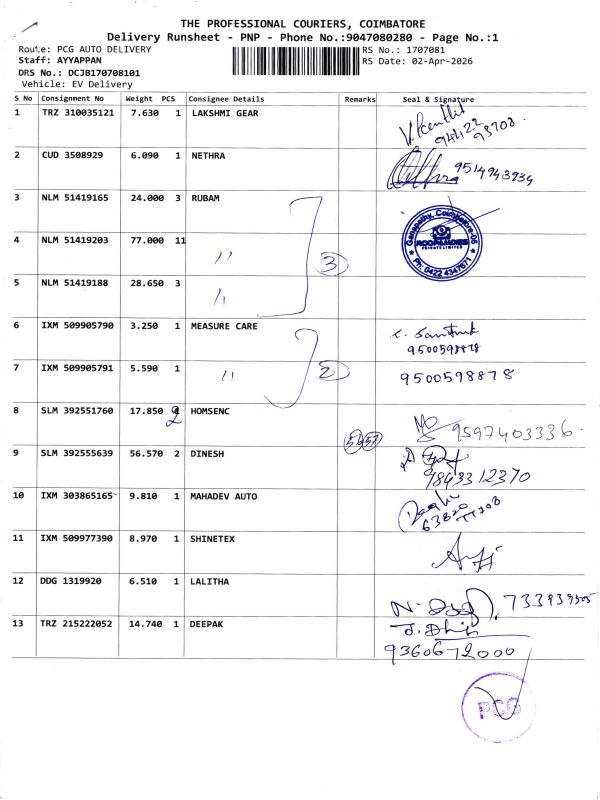 THE PROFESSIONAL COURIERS, COIMBATORE
Delivery Runsheet - PNP - Phone No.:9047080280 - Page No.:1
Route: PCG AUTO DELIVERY
RS No.: 1707081
Staff: AYYAPPAN
RS Date: 02-Apr-2026
DRS No.: DCJB170708101
Vehicle: EV Delivery
S No Consignment No Weight PCS Consignee Details Remarks Seal & Signature
1 TRZ 310035121 7.630 1 LAKSHMI GEAR
94422
93708
2 CUD 3508929 6.090 1 NETHRA 9514943934
3 NLM 51419165 24.000 3 RUBAM
4 NLM 51419203 77.000 11 " 3
Ganapathy, Coimbatore-06
PRIVATE LIMITED
Ph: 0422 4347671
5 NLM 51419188 28.650 3 "
6 IXM 509905790 3.250 1 MEASURE CARE
9500598878
7 IXM 509905791 5.590 1 " 2 9500598878
8 SLM 392551760 17.850 2 HOMSENC 9597403336
5657
9 SLM 392555639 56.570 2 DINESH
9843312370
10 IXM 303865165 9.810 1 MAHADEV AUTO
63820
77208
11 IXM 509977390 8.970 1 SHINETEX
12 DDG 1319920 6.510 1 LALITHA
13 TRZ 215222052 14.740 1 DEEPAK
9360672000
PCG